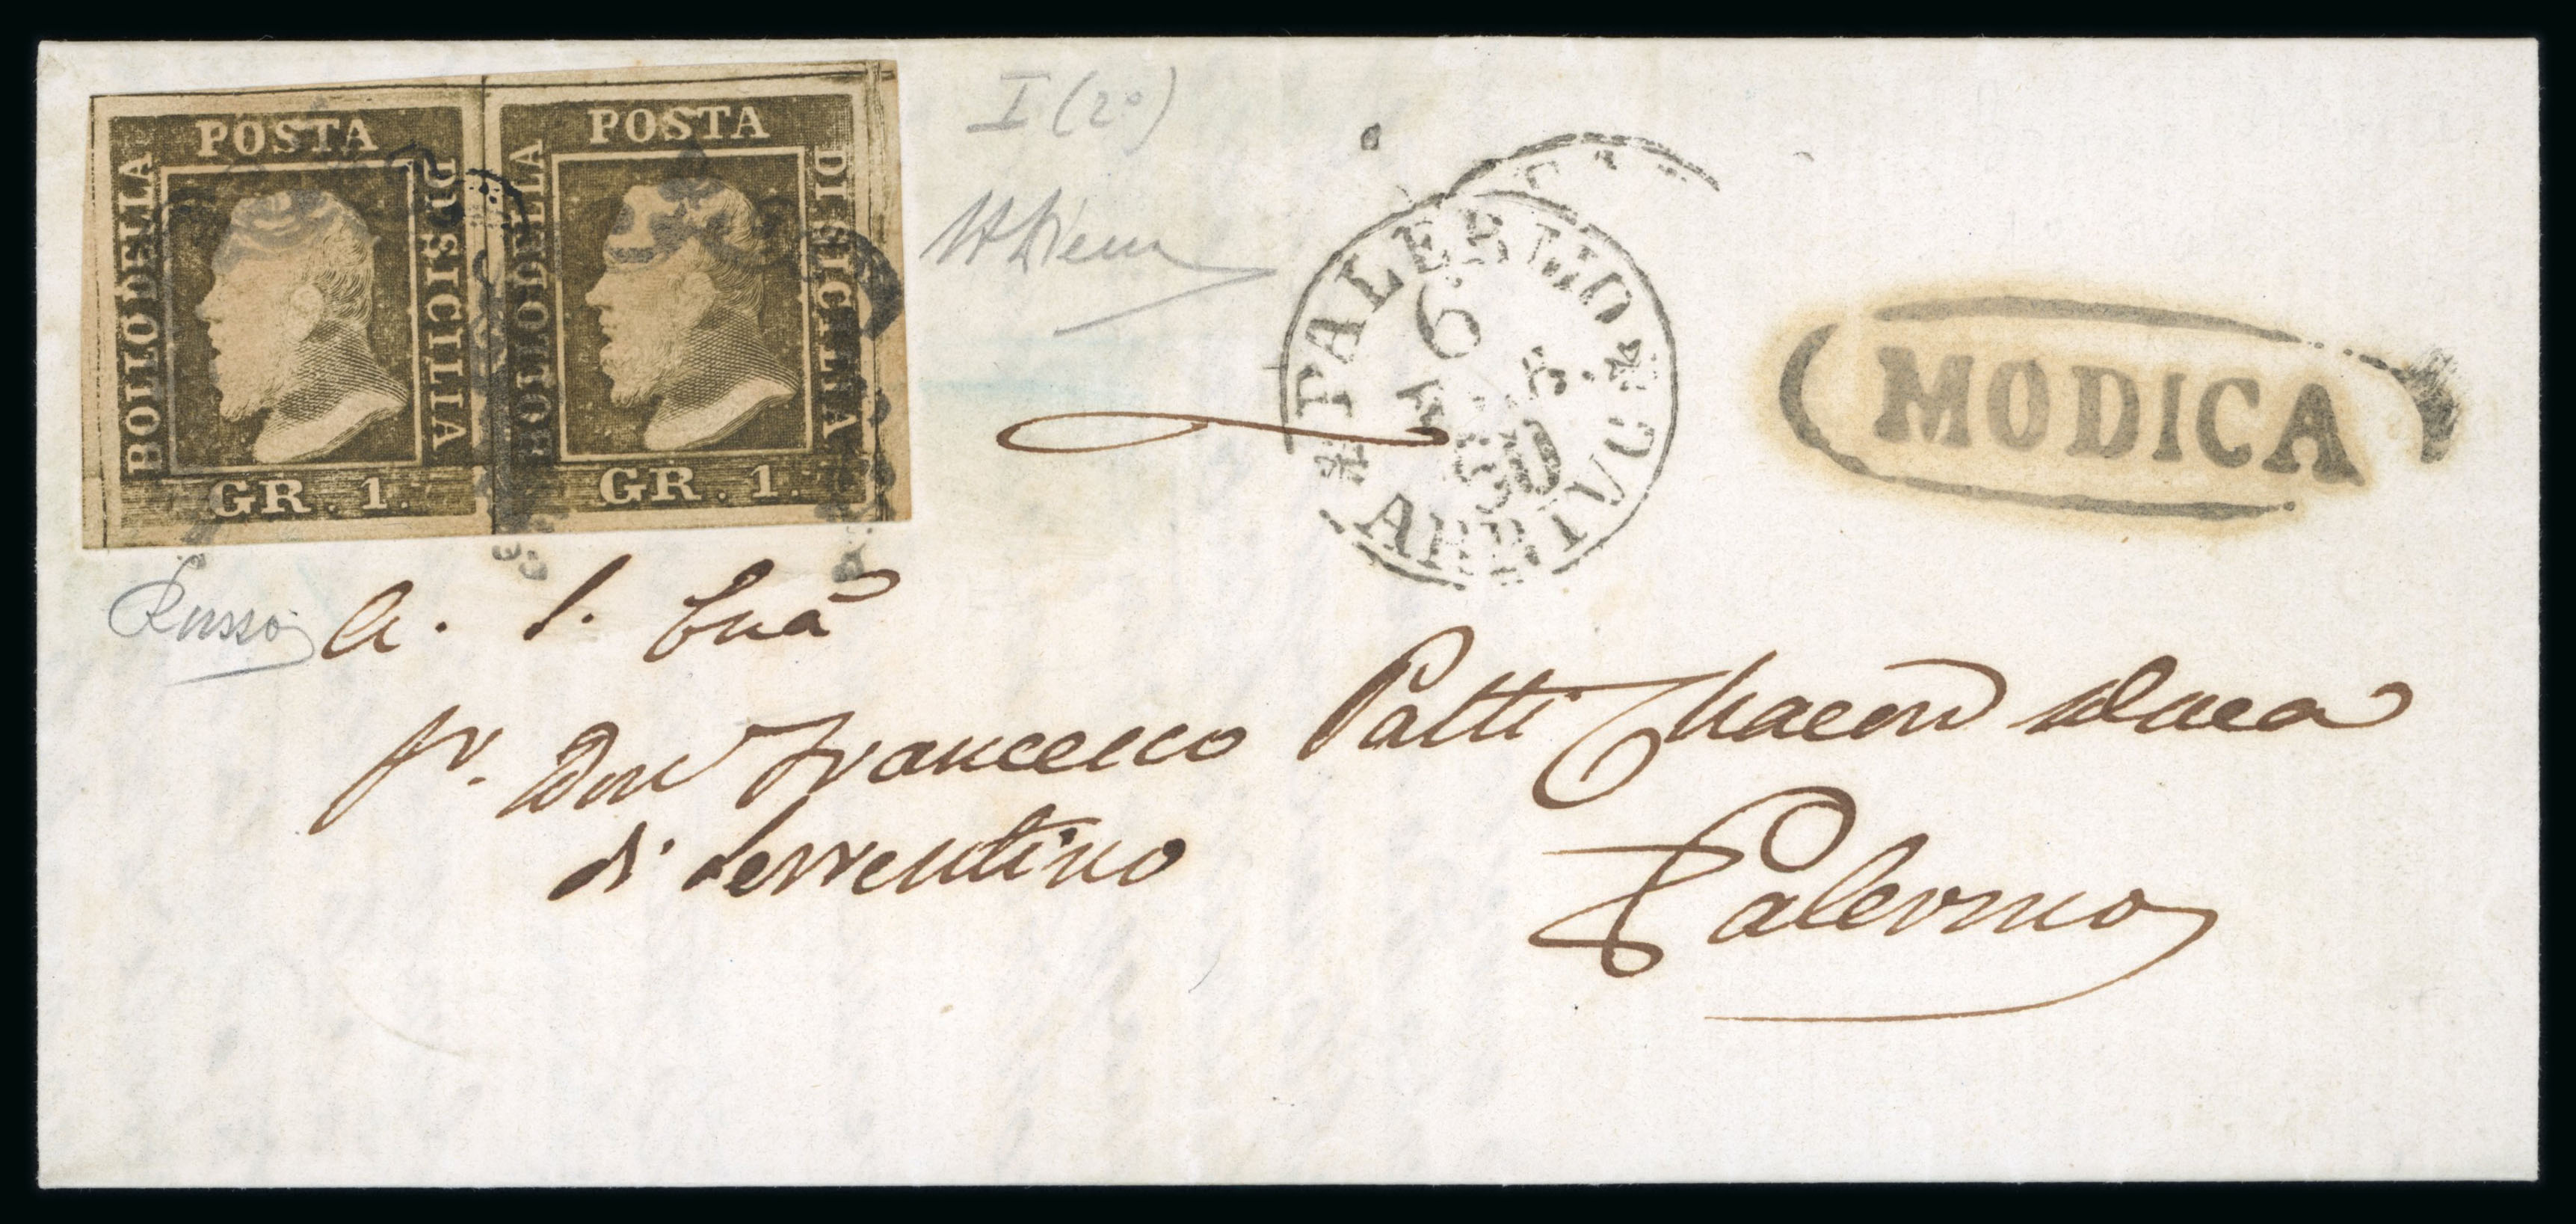 POSTA
BOLLO DELLA
DI SICILIA
GR. 1.
POSTA
BOLLO DELLA
DI SICILIA
GR. 1.
I (2°)
PALERMO
6
60
ARRIVO
MODICA
Russo
A. S. Ecca
Sr. Don Francesco Patti Chacon Duca
di Serrentino
Palermo